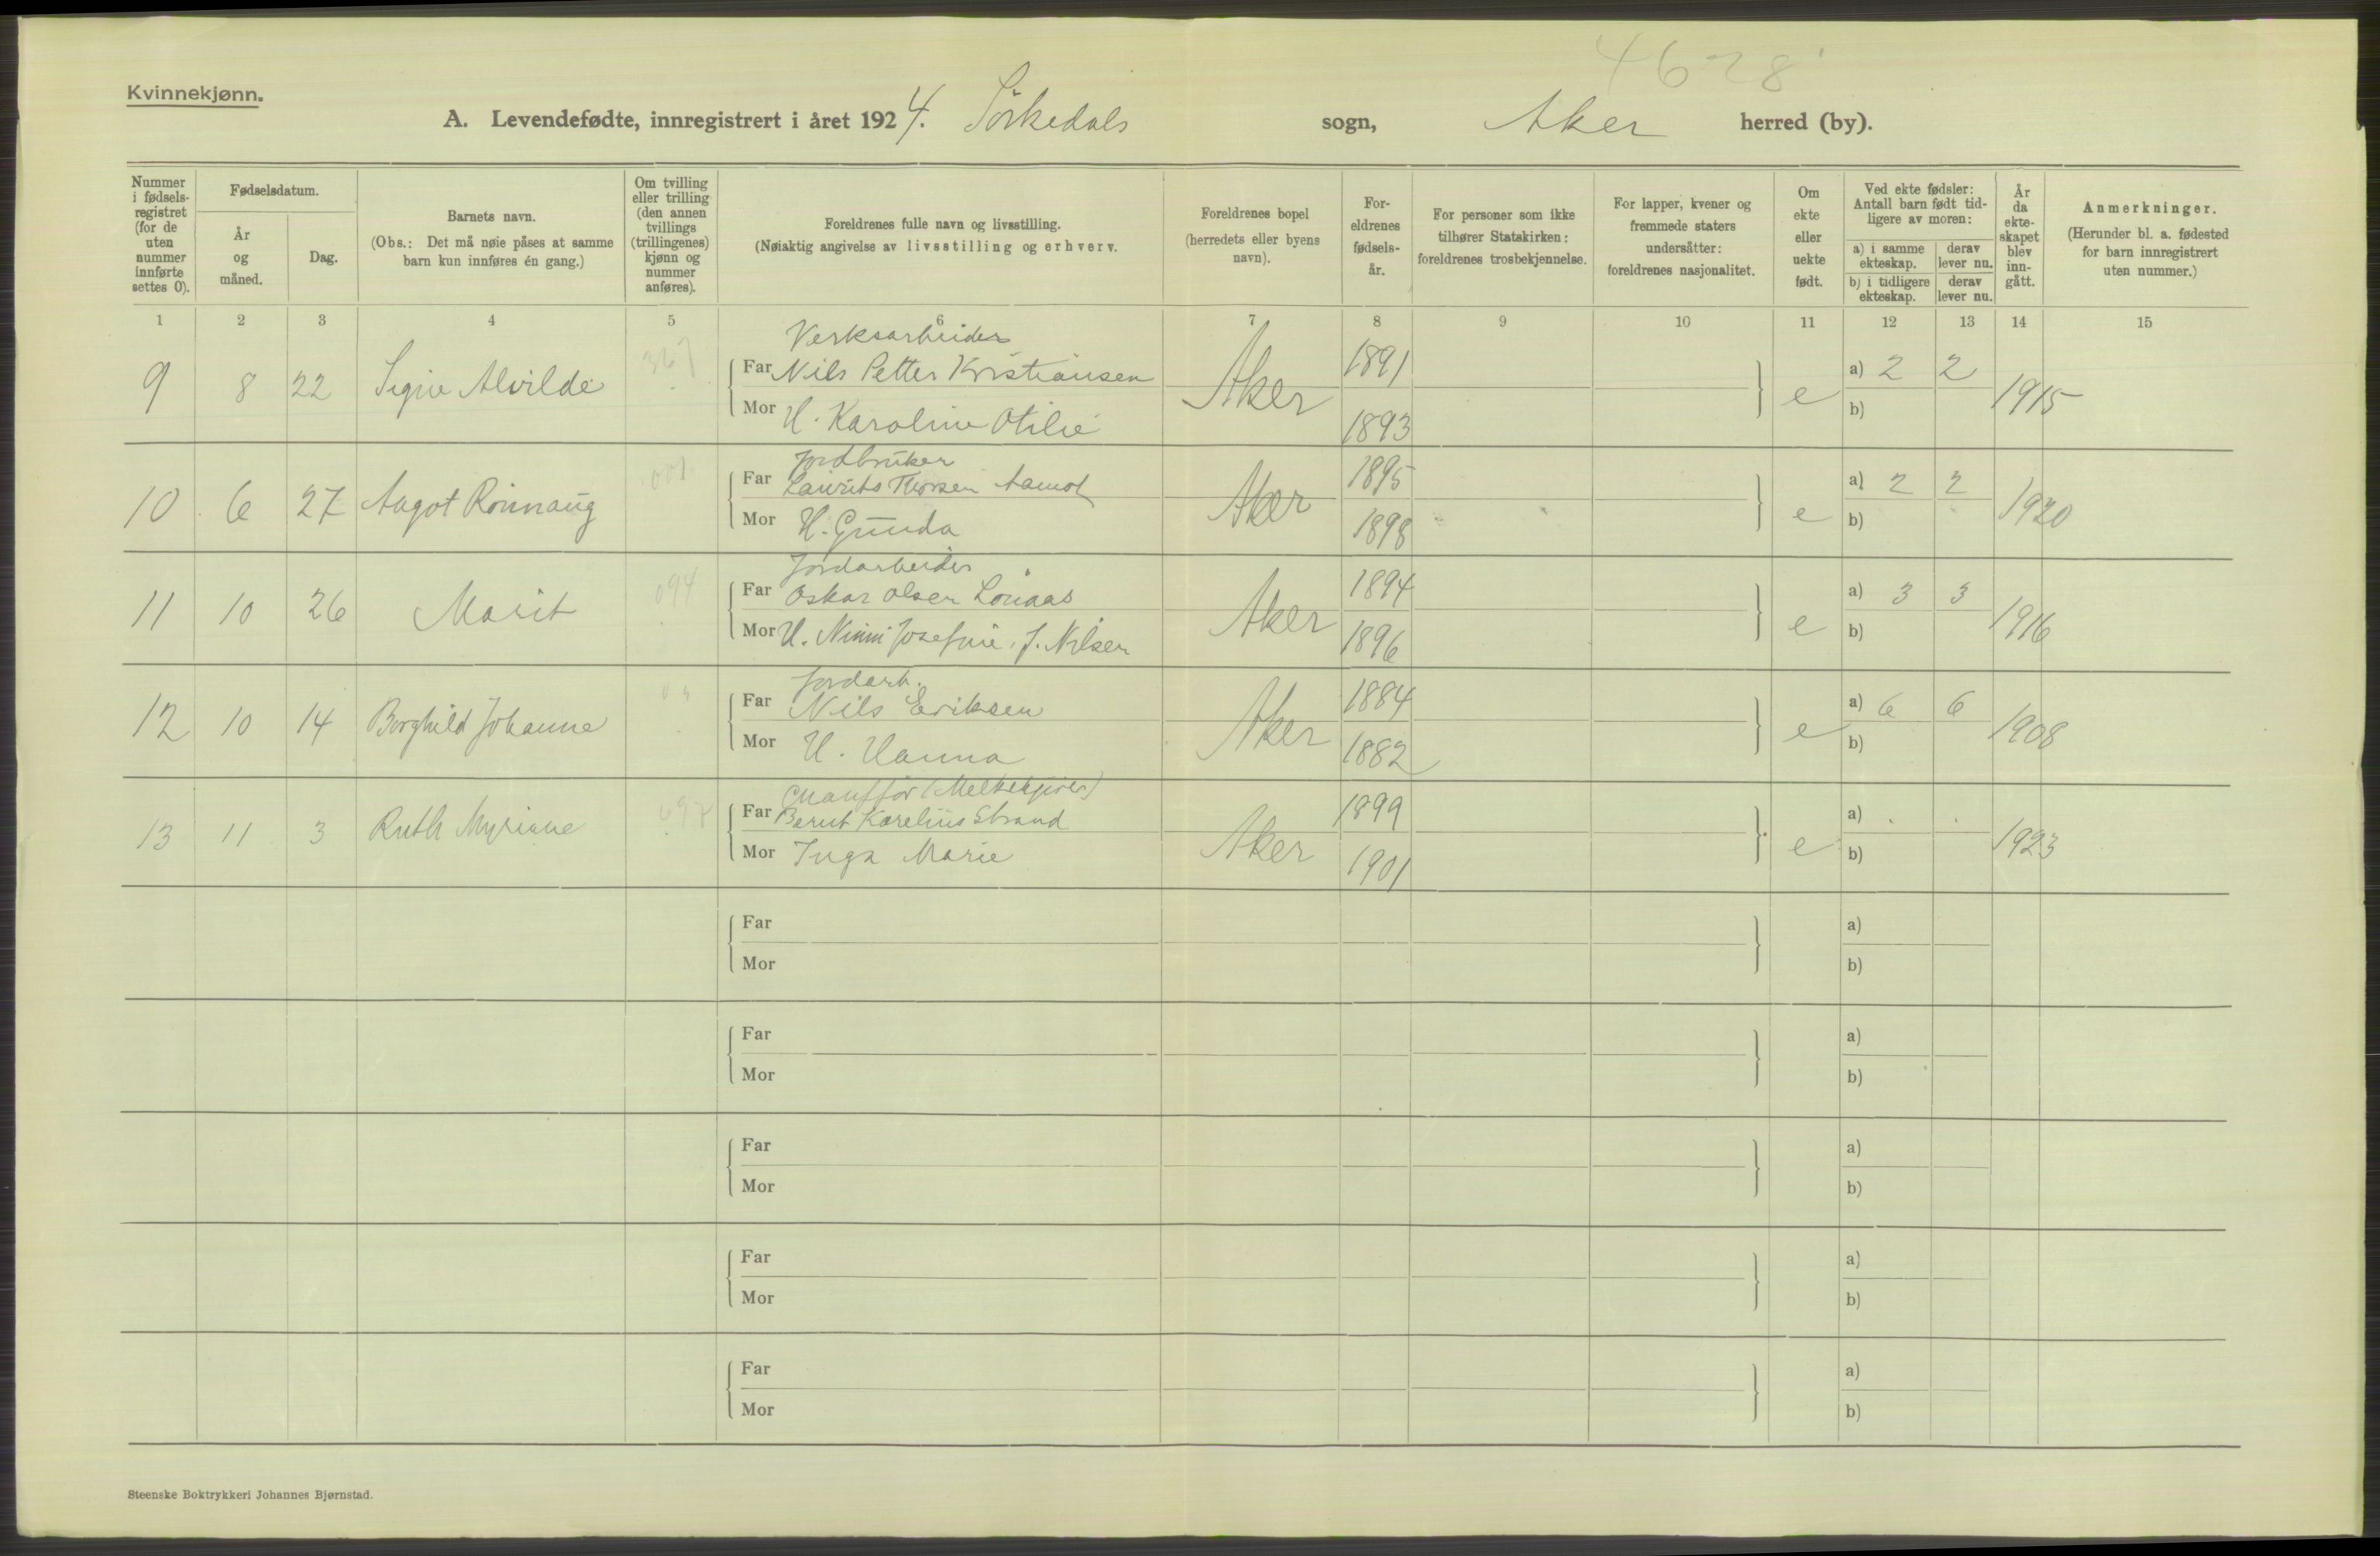 4628
Kvinnekjønn.
A. Levendefødte, innregistrert i året 1924. Sörkedals sogn, Aker herred (by).
Nummer i fødsels-registret (for de uten nummer innførte settes 0).
Fødselsdatum.
År og måned.
Dag.
Barnets navn.
(Obs.: Det må nøie påses at samme barn kun innføres én gang.)
Om tvilling eller trilling (den annen tvillings (trillingenes) kjønn og nummer anføres).
Foreldrenes fulle navn og livsstilling.
(Nøiaktig angivelse av livsstilling og erhverv.
Foreldrenes bopel (herredets eller byens navn).
For-eldrenes fødsels-år.
For personer som ikke tilhører Statskirken: foreldrenes trosbekjennelse.
For lapper, kvener og fremmede staters undersåtter: foreldrenes nasjonalitet.
Om ekte eller uekte født.
Ved ekte fødsler: Antall barn født tid-ligere av moren:
a) i samme ekteskap.
derav lever nu.
b) i tidligere ekteskap.
derav lever nu.
År da ekte-skapet blev inn-gått.
Anmerkninger.
(Herunder bl. a. fødested for barn innregistrert uten nummer.)
1 2 3 4 5 6 7 8 9 10 11 12 13 14 15
Verksarbeider
9 8 22 Signe Alvilde 367 Far Nils Petter Kristiansen Aker 1891 e a) 2 2 1915
Mor H. Karoline Otilie 1893 b)
Jordbruker
10 6 27 Aagot Rönnaug 001 Far Laurits Thorsen Aamot Aker 1895 e a) 2 2 1920
Mor H. Gunda 1898 b)
Jordarbeider
11 10 26 Marit 094 Far Oskar Olsen Lönaas Aker 1894 e a) 3 3 1916
Mor H. Ninni Josefine, f. Nilsen 1896 b)
Jordarb.
12 10 14 Borghild Johanne Far Nils Eriksen Aker 1884 e a) 6 6 1908
Mor H. Hanna 1882 b)
Chaufför (Melkekjörer)
13 11 3 Ruth Myriane Far Bernt Korelius Strand Aker 1899 e a) 1923
Mor Inga Marie 1901 b)
Far a)
Mor b)
Far a)
Mor b)
Far a)
Mor b)
Far a)
Mor b)
Far a)
Mor b)
Steenske Boktrykkeri Johannes Bjørnstad.